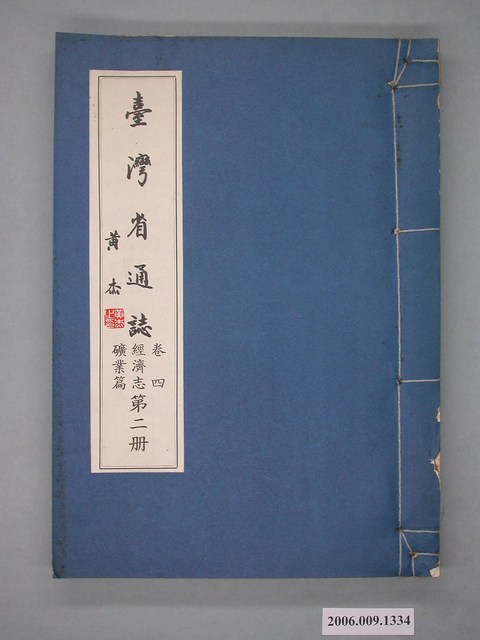 臺灣省通誌
黃杰
卷四
經濟志
礦業篇
第二册
2006.009.1334